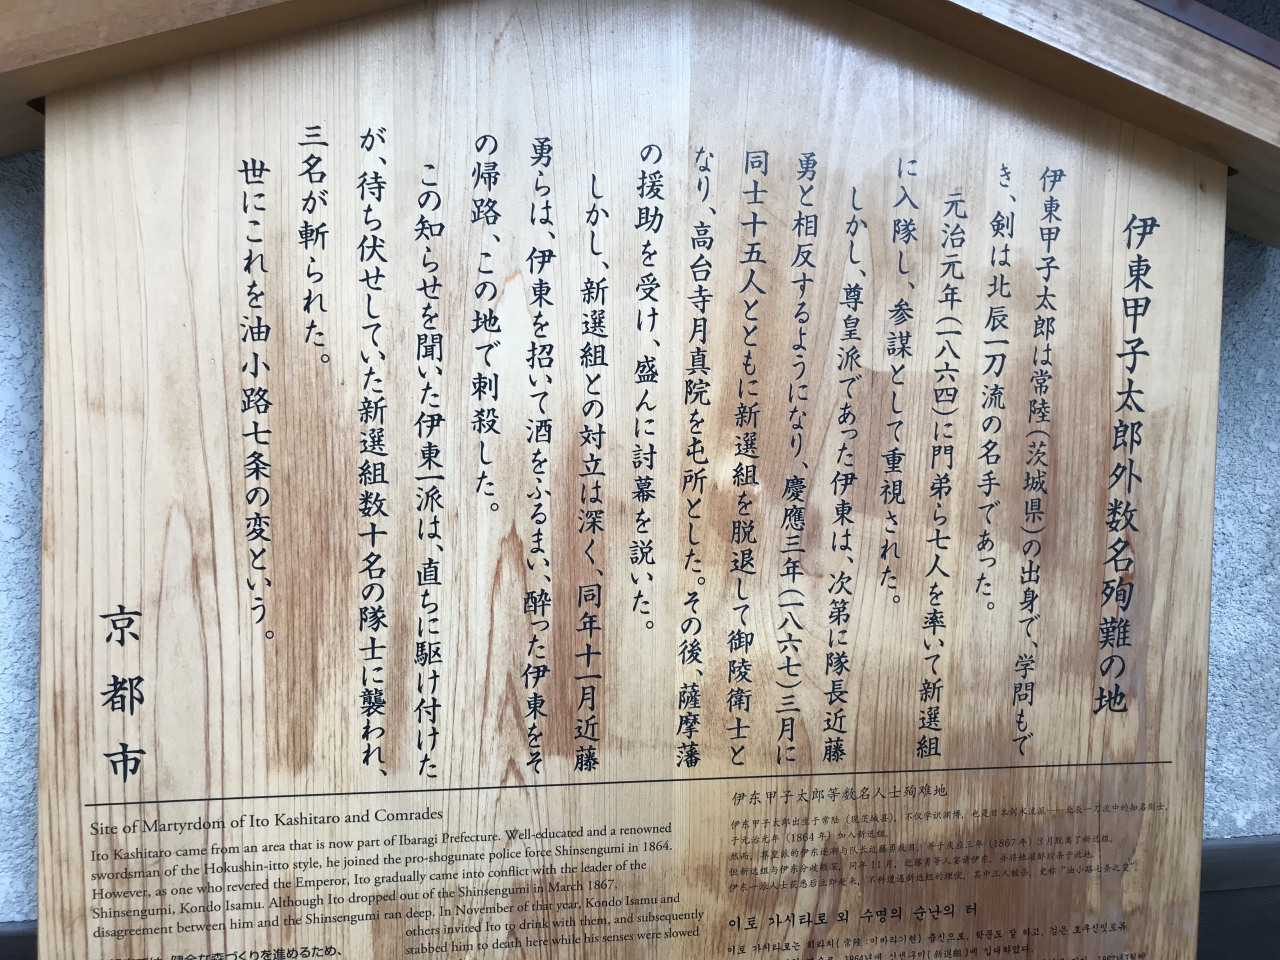 伊東甲子太郎外数名殉難の地
伊東甲子太郎は常陸(茨城県)の出身で、学問もで
き、剣は北辰一刀流の名手であった。
元治元年(一八六四)に門弟ら七人を率いて新選組
に入隊し、参謀として重視された。
しかし、尊皇派であった伊東は、次第に隊長近藤
勇と相反するようになり、慶應三年(一八六七)三月に
同士十五人とともに新選組を脱退して御陵衛士と
なり、高台寺月真院を屯所とした。その後、薩摩藩
の援助を受け、盛んに討幕を説いた。
しかし、新選組との対立は深く、同年十一月近藤
勇らは、伊東を招いて酒をふるまい、酔った伊東をそ
の帰路、この地で刺殺した。
この知らせを聞いた伊東一派は、直ちに駆け付けた
が、待ち伏せしていた新選組数十名の隊士に襲われ、
三名が斬られた。
世にこれを油小路七条の変という。
京都市
Site of Martyrdom of Ito Kashitaro and Comrades
Ito Kashitaro came from an area that is now part of Ibaragi Prefecture. Well-educated and a renowned
swordsman of the Hokushin-itto style, he joined the pro-shogunate police force Shinsengumi in 1864.
However, as one who revered the Emperor, Ito gradually came into conflict with the leader of the
Shinsengumi, Kondo Isamu. Although Ito dropped out of the Shinsengumi in March 1867,
disagreement between him and the Shinsengumi ran deep. In November of that year, Kondo Isamu and
others invited Ito to drink with them, and subsequently
stabbed him to death here while his senses were slowed
健全な森づくりを進めるため、
伊东甲子太郎等数名人士殉难地
伊东甲子太郎出生于常陆(现茨城县),不仅学识渊博,也是日本剑术流派——北辰一刀流中的知名剑士,
于元治元年(1864年)加入新选组。
然而,尊皇派的伊东逐渐与队长近藤勇反目,并于庆应三年(1867年)3月脱离了新选组。
但新选组与伊东分歧颇深,同年11月,近藤勇等人宴请伊东,并将他灌醉后杀于此地。
伊东一派人士获悉后立即赶来,不料遭遇新选组的埋伏,其中三人被杀,史称"油小路七条之变"。
이토 가시타로 외 수명의 순난의 터
이토 가시타로는 히타치(常陸:이바라기현) 출신으로, 학문도 잘 하고, 검은 호쿠신잇토류
1864년에 신센구미(新選組)에 입대하였다.